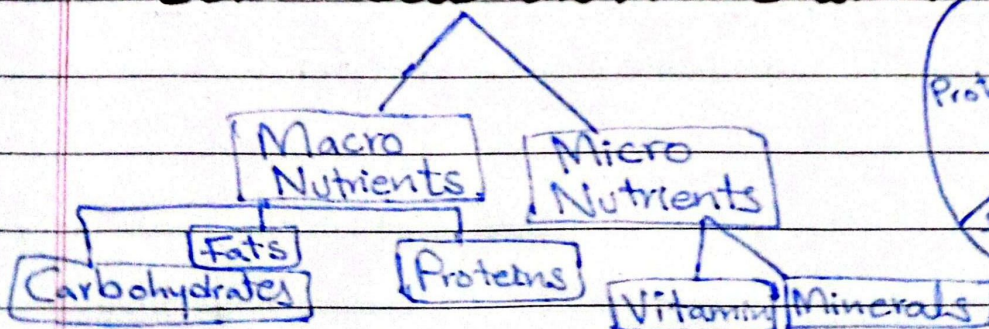 Macro
Nutrients
Micro
Nutrients
Fats
Carbohydrates
Proteins
Vitamin
Minerals